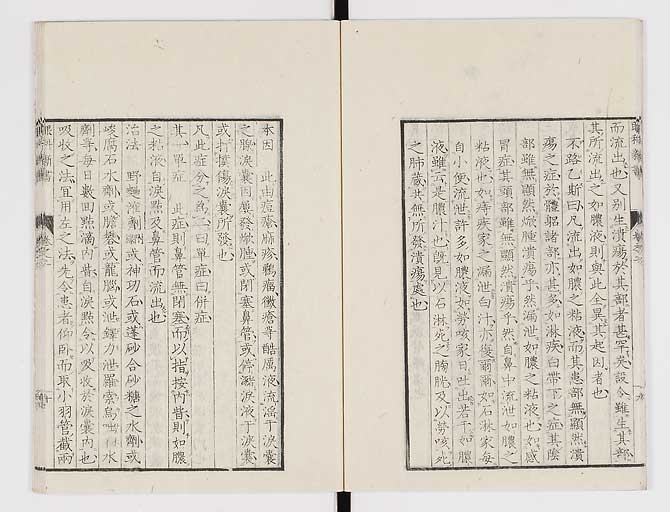 而流出也又別生潰瘍於其部者甚罕矣設令雖生其部
其所流出之如膿液則與此全異其起因者也
不路乙斯曰凡流出如膿之粘液而其患部無顯然潰
瘍之症於體軀諸部亦甚多如淋疾白帶下之症其陰
部雖無顯然焮腫潰瘍乎然漏泄如膿之粘液也如感
冒症其頭部雖無顯然潰瘍乎然自鼻中流泄如膿之
粘液也如痔疾家之漏泄白汁亦復爾爾如石淋家每
自小便流泄許多如膿液如勞咳家日吐出若干如膿
液雖云是膿汁也旣見以石淋死之胸胱及以勞咳死
之肺藏其無所發潰瘍處也
本因 此由痘瘡麻疹鸛瘍黴瘡等酷厲液流淫于淚囊
之腺淚囊因廣發焮腫或閉塞鼻管或停瀦淚液于淚囊
或打撲傷淚囊所發也
凡此症分之爲二曰單症曰併症
其一單症 此症則鼻管無閉塞而以指按內眥則如膿
之粘液自淚點及鼻管而流出也
治法 野麵淮劑或神功石或蓬砂合砂糖之水劑或
峻腐石水劑或膽礬或龍腦或泄鐸力泄羅索烏 水
劑等每日數回點滴內眥自淚點令以吸收於淚囊內也
吸收之法宜用左之法先令患者仰臥而取小羽管截兩
眼科新書